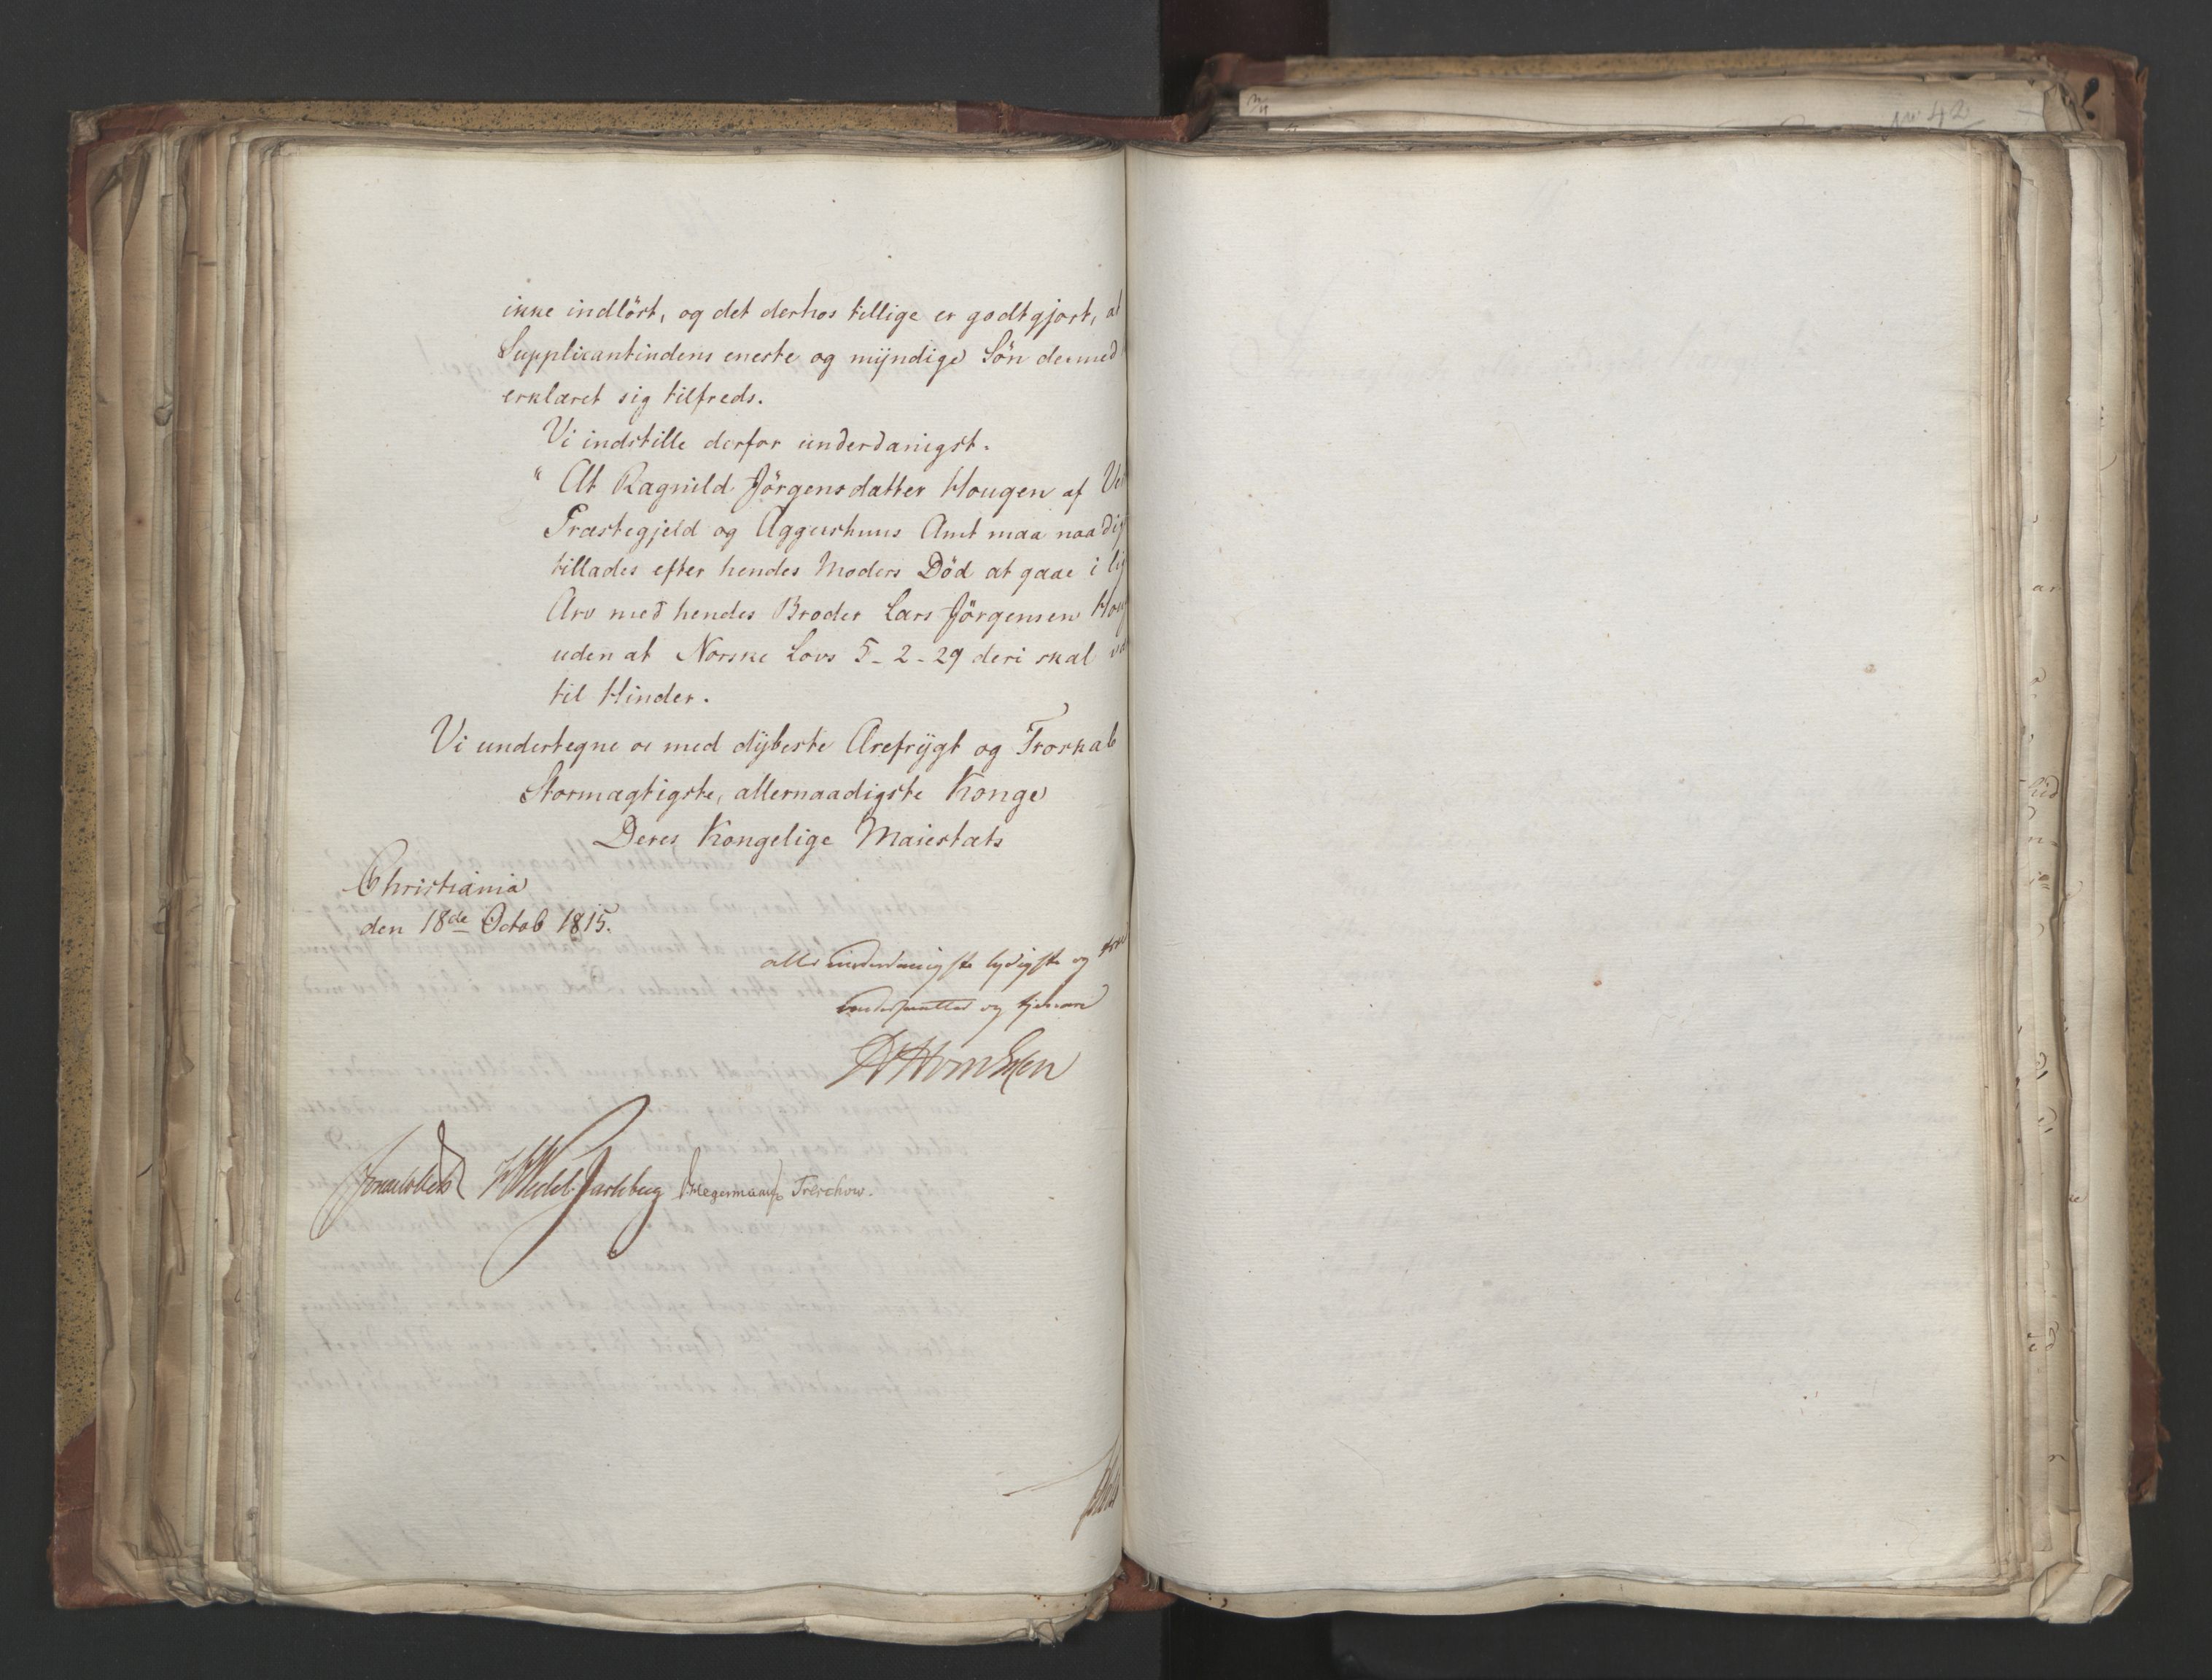 No 42
ikke indlöst, og det derhos tillige er godtgjort, at
Supplicantindens eneste og mÿndige Sön dermed
erklæret sig tilfreds.
Vi indstille derfor underdanigst.
" At Ragnild Jörgensdatter Hougen af
Præstegjeld og Aggershuus Amt maa naadig
tillades efter hendes Moders Död at gaae i lig
Arv med hendes Broder Lars Jörgensen Houg
uden at Norske Lovs 5-2-29 deri skal
til Hinder.
Vi undertegne os med dÿbeste Ærefrÿgt og Troskab
Stormægtigste, allernaadigste Konge
Deres Kongelige Maiestæts
Christiania
den 18de Octob 1815.
allerunderdanigste lydigste og
undersaatter og tjenere
Wedel Jarlsberg Hegermann Treschow.